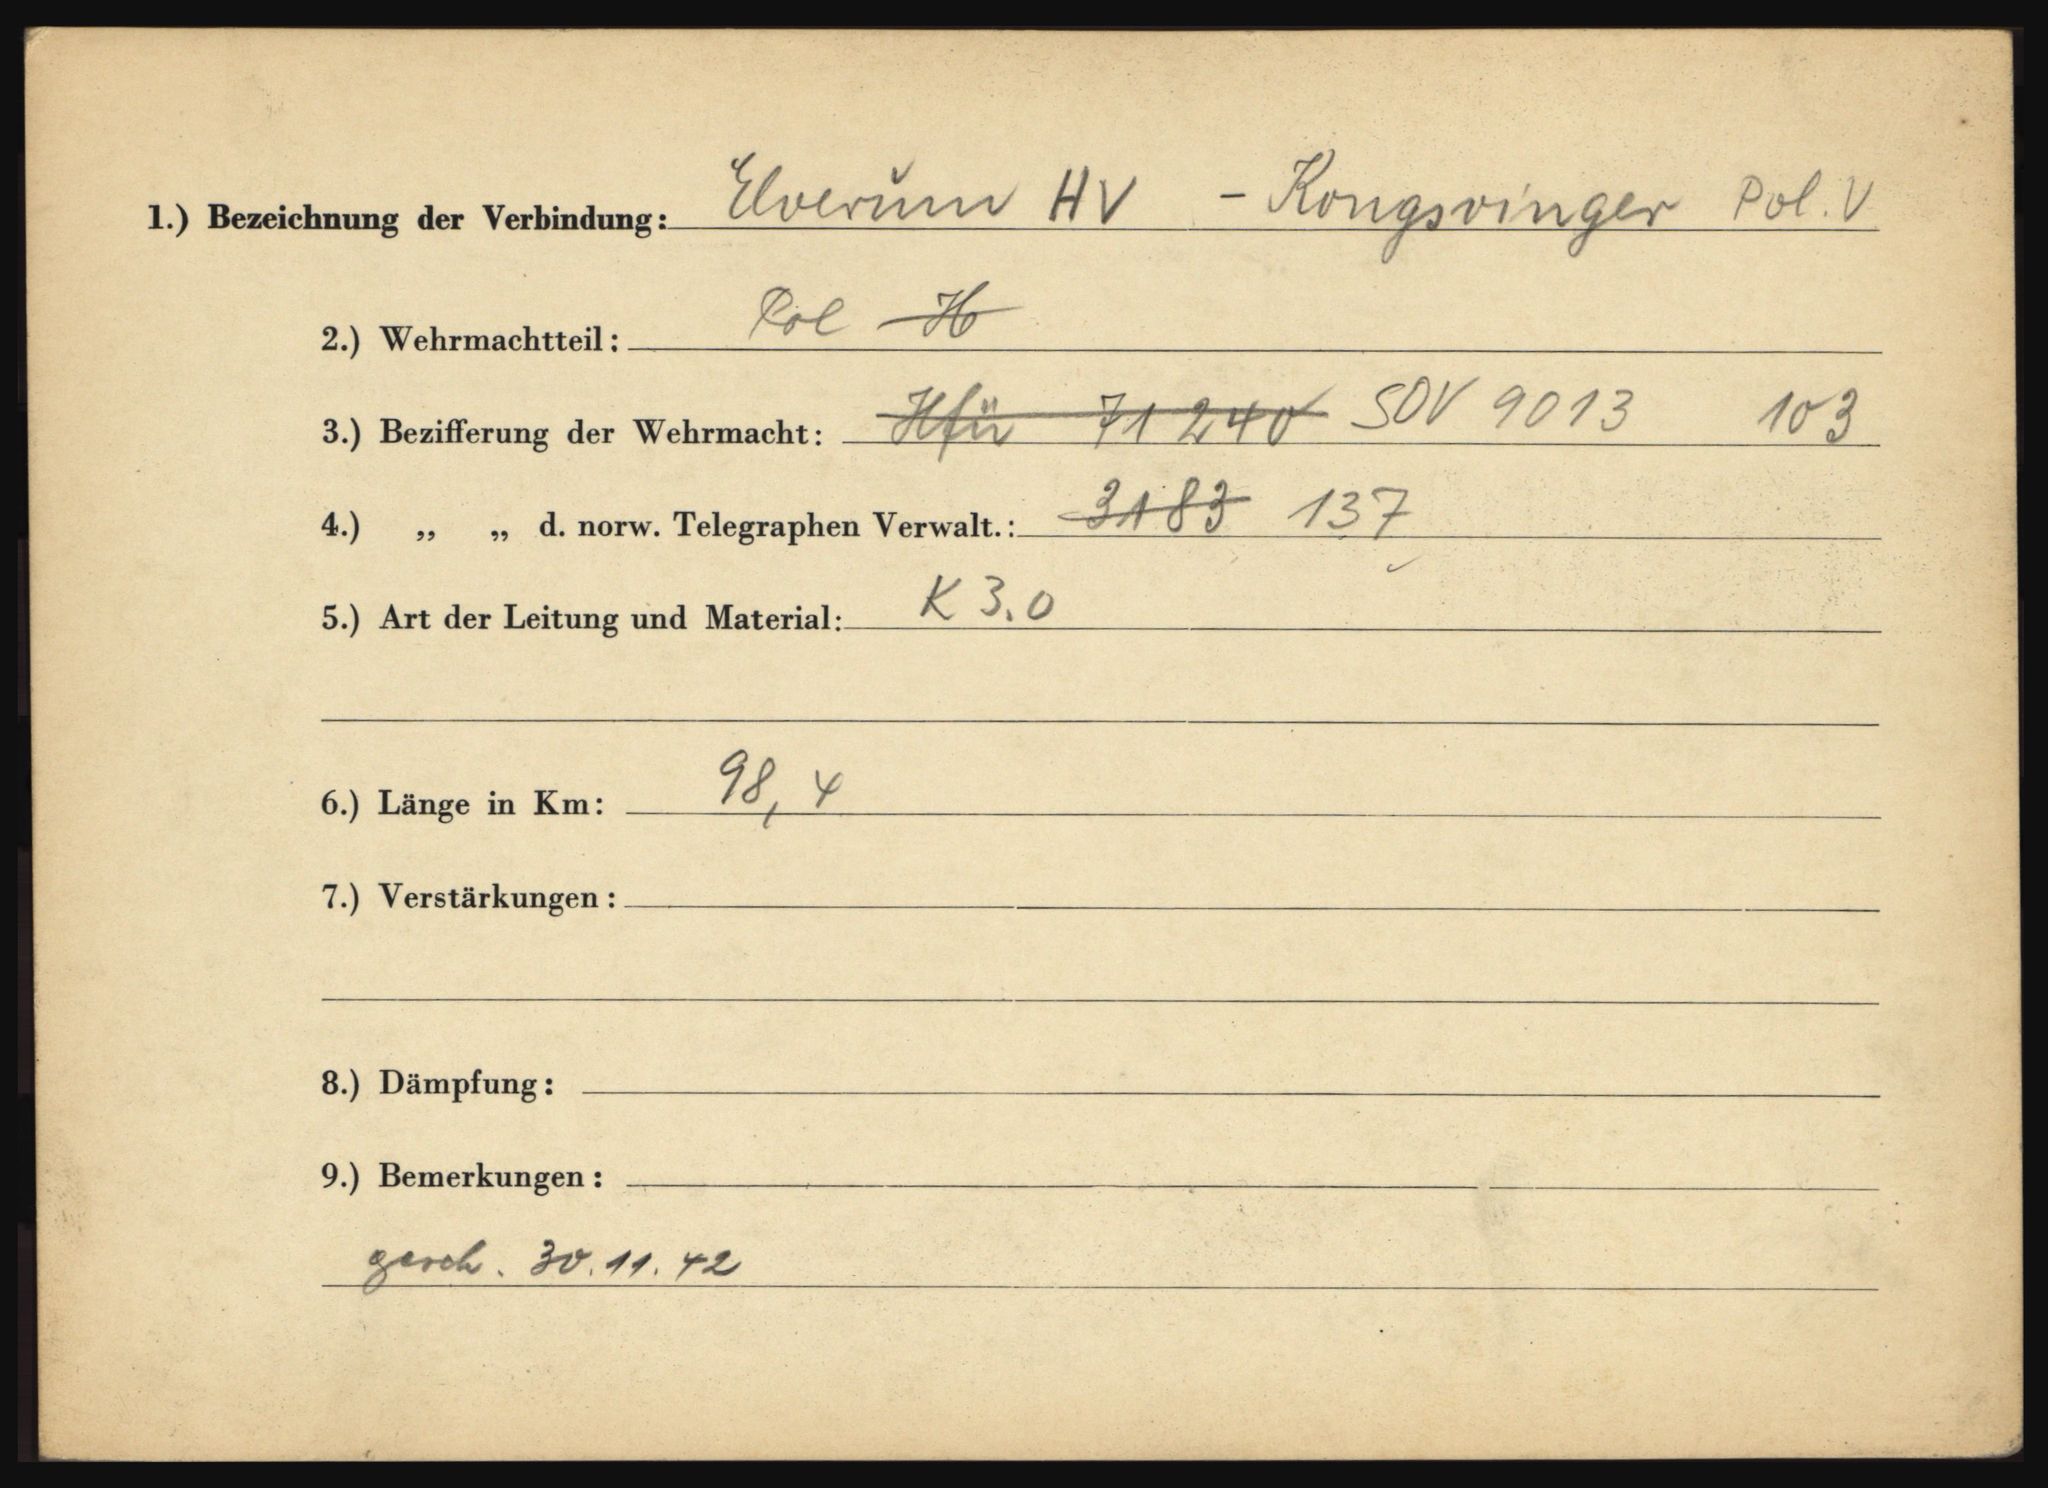 1.) Bezeichnung der Verbindung: Elverum HV - Kongsvinger Pol. V
2.) Wehrmachtteil: Pol H
3.) Bezifferung der Wehrmacht: Hfü 71240 SOV 9013 103
4.) „ „ d. norw. Telegraphen Verwalt.: 3183 137
5.) Art der Leitung und Material: K 3.0
6.) Länge in Km: 98,4
7.) Verstärkungen:
8.) Dämpfung:
9.) Bemerkungen:
gesch. 30.11.42